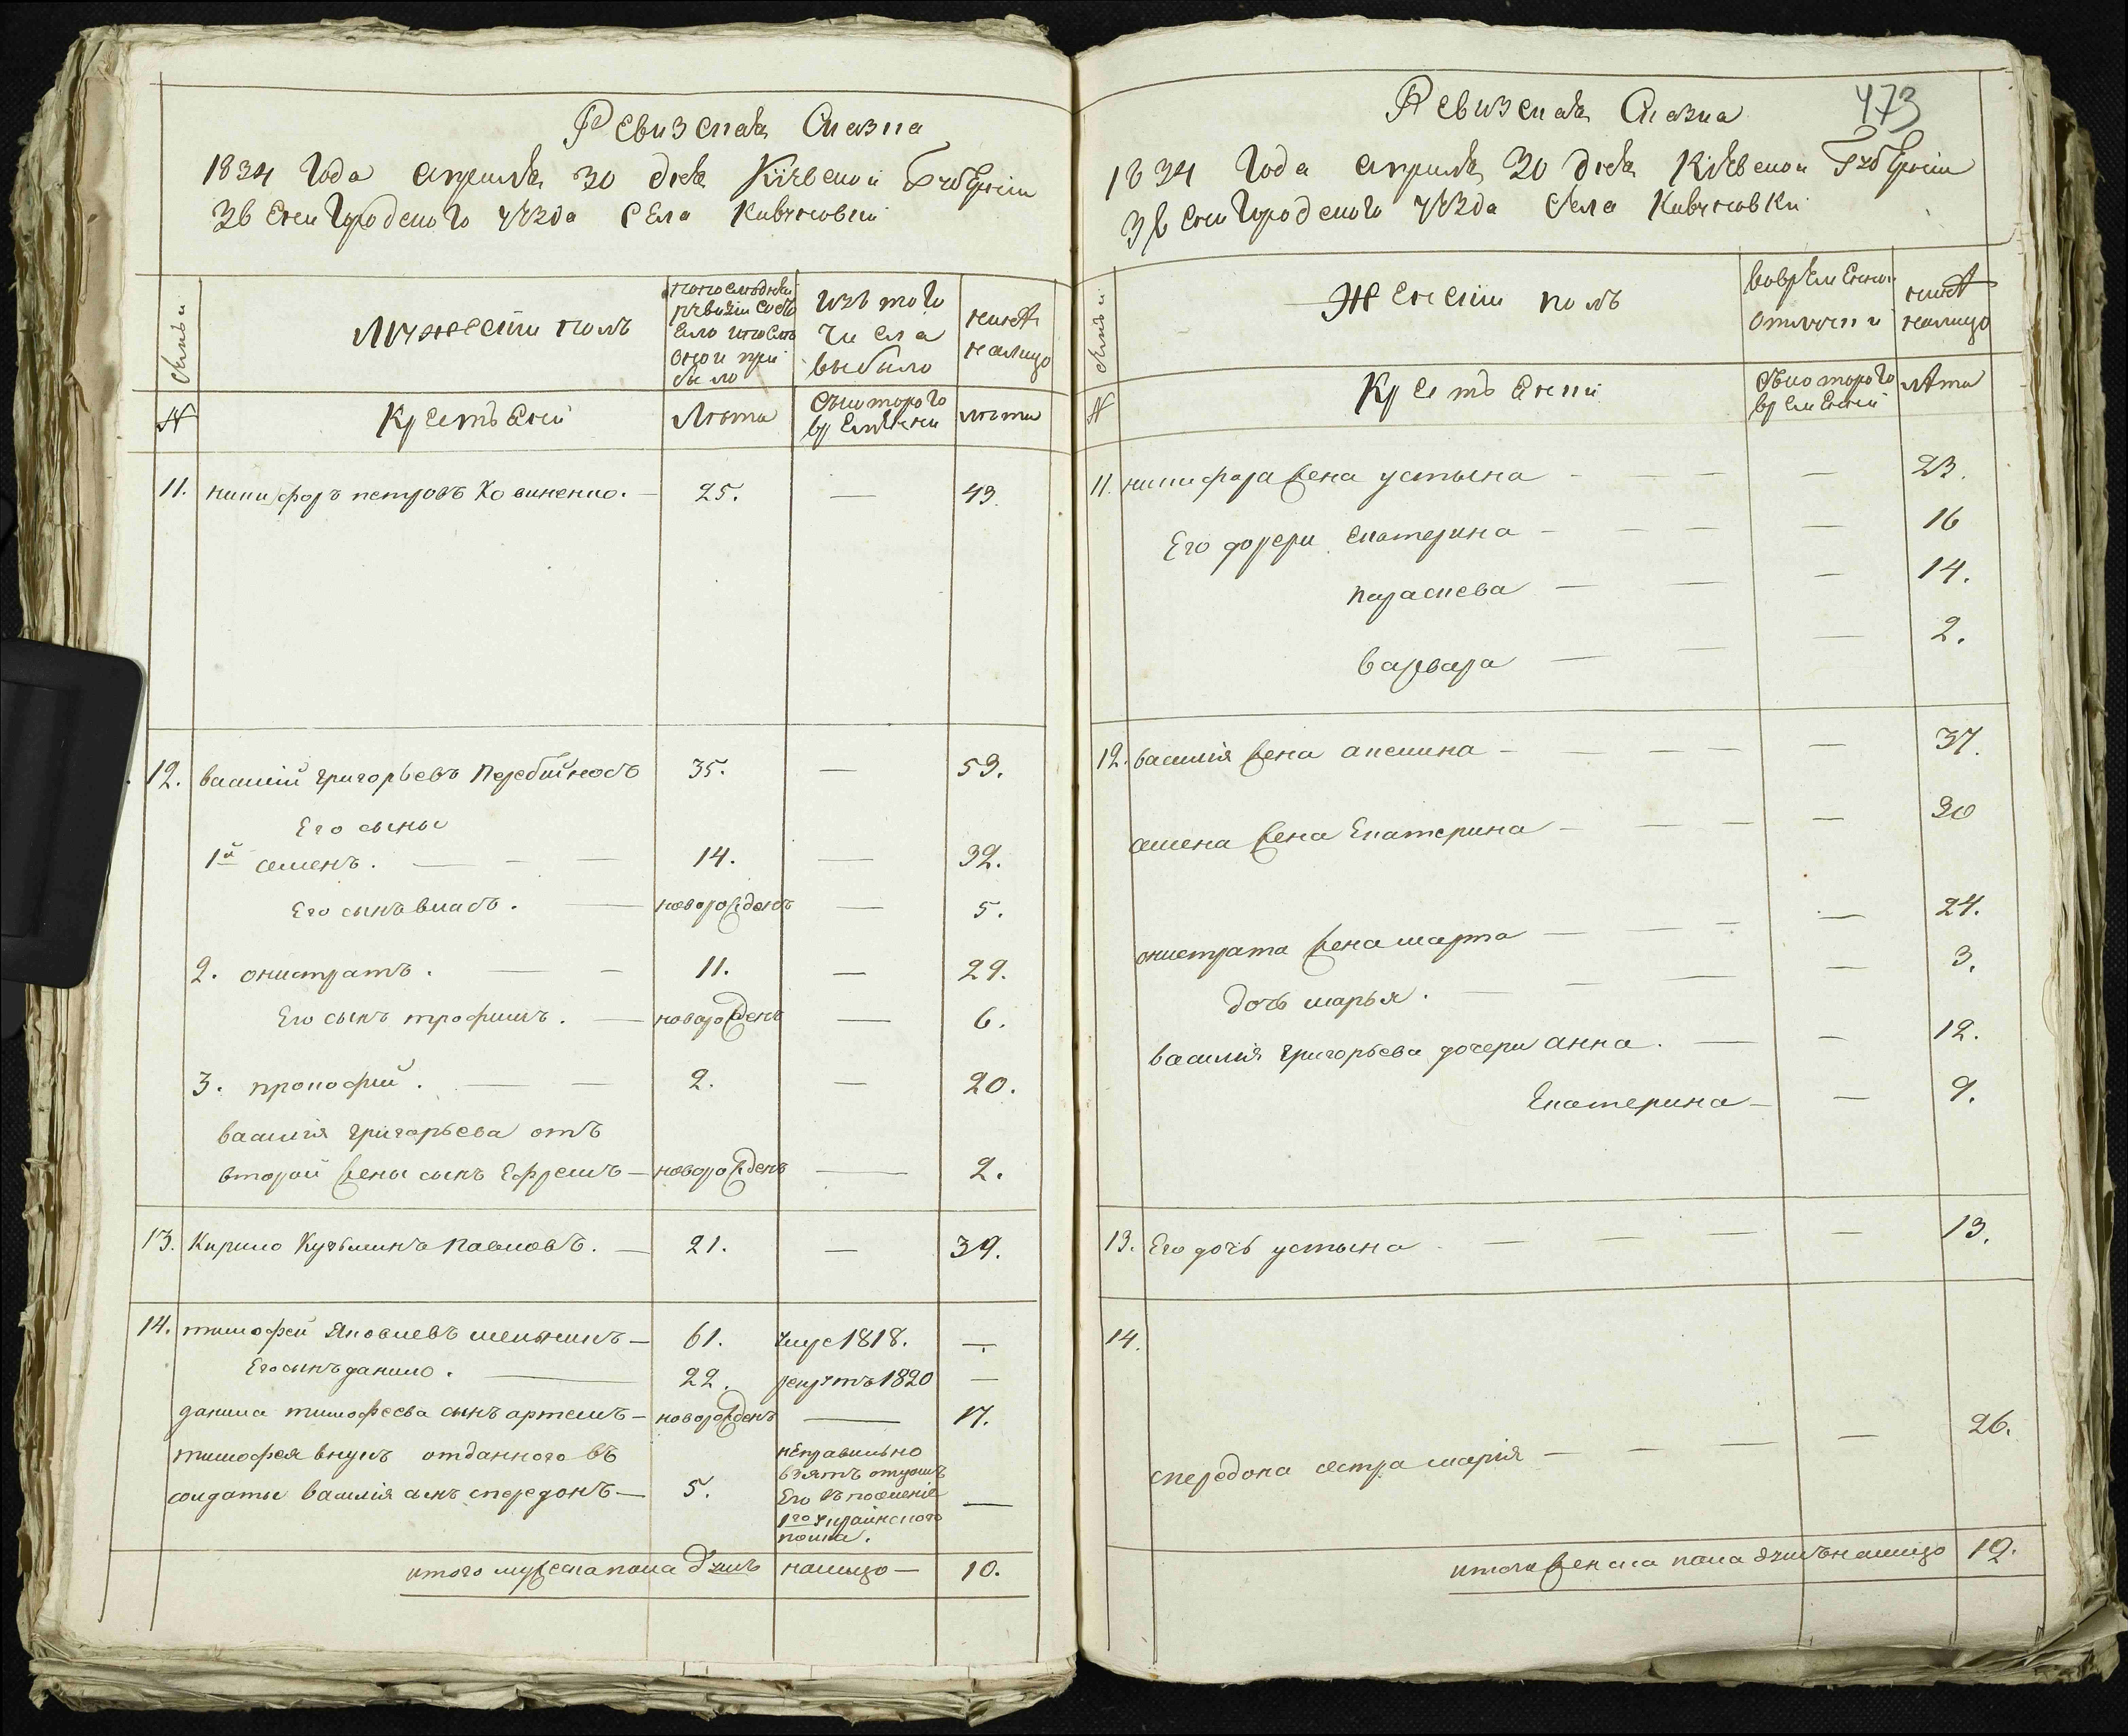 Ревизская Сказка
1834 Года апреля 30 дня Кіевской Губерніи
Звенигородского уезда Села Кивчновки
Семьи
Мужеский полъ
по последней ревизіи состояло и после оной прибыло
Изъ того числа выбыло
ныне на лицо
№
Крестьяни
Лета
Съ котораго времяни
лета
11. никифоръ петровъ Ковиненко. — 25. — 43.
12. василій григорьевъ Перебийносъ 35. — 53.
Его сыны
1й семенъ. — 14. — 32.
Его сынъ власъ. — новорожденъ — 5.
2. онистратъ. — 11. — 29.
Его сынъ трофимъ. — новорожденъ — 6.
3. прокофій. — 2. — 20.
василія григорьева отъ
второй жены сынъ Ефремъ — новорожденъ — 2.
13. Кирило Кузьминъ Павловъ. — 21. — 39.
14. тимофей Яковлевъ — 61. умре 1818. —
Его сынъ данило. — 22. рекрутъ 1820 —
данила тимофеева сынъ артемъ — новорожденъ — 17.
тимофея внукъ отданного въ
солдаты василія сынъ спередонъ — 5. —
неправильно
взятъ отцомъ
Его въ поселеніе
1го украинского
полка.
итого мужеска пола душъ налицо — 10.
473
Ревизская Сказка
1834 Года апреля 30 дня Кіевской Губерніи
Звенигородского уезда Села Кивчновки
Семьи
Женскій полъ
Во временной отлучки
ныне налицо
№
Крестьянки
Съ котораго времяни
лета
11. никифора жена устына — 23.
Его дочери Екатерина — 16
параскева — 14.
варвара — 2.
12. василія жена акелина — 37.
семена жена Екатерина — 30
онистрата жена марта — 24.
дочь марья. — 3.
василія григорьева дочери анна. — 12.
Екатерина — 9.
13. Его дочь устына — 13.
14.
спередона сестра марія — 26.
итого женска пола душъ налицо 12.